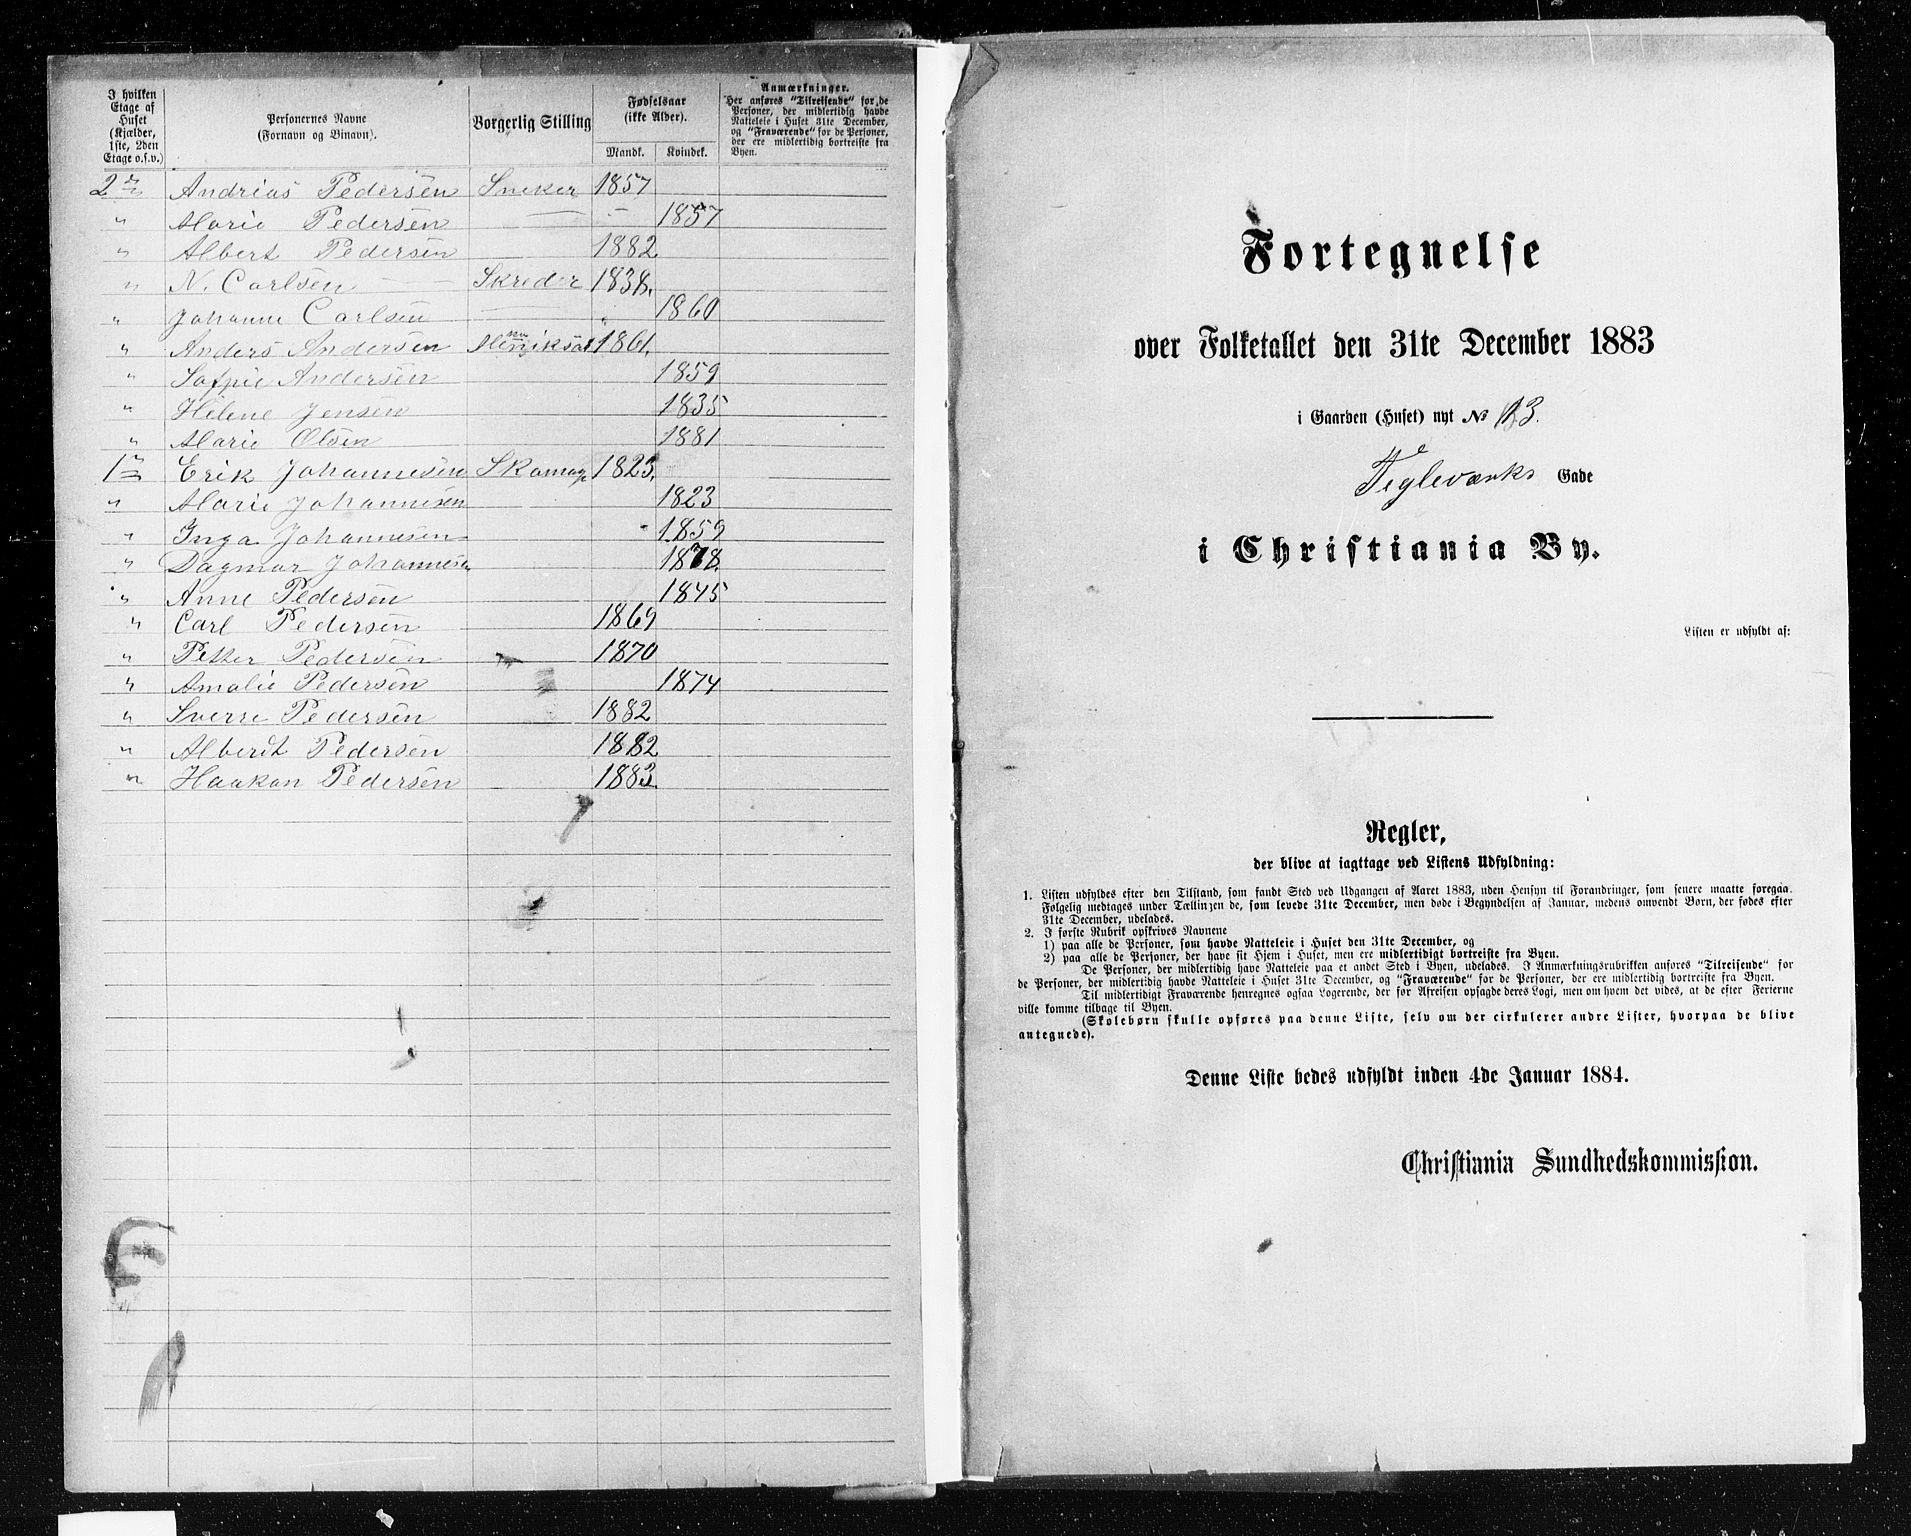 I hvilken Etage af Huset (Kjælder, 1ste, 2den Etage o.s.v.)
Personernes Navne (Fornavn og Binavn).
Borgerlig Stilling
Fødselsaar (ikke Alder).
Mandk. Kvindek.
Anmærkninger.
Her anføres "Tilreisende" for de Personer, der midlertidig havde Natteleie i Huset 31te December, og "Fraværende" for de Personer, der ere midlertidig bortreiste fra Byen.
2 Andrias Pedersen Sneker 1857
" Marie Pedersen — – 1857
" Albert Pedersen 1882
" N. Carlsen — Skreder 1838.
" Johanne Carlsen — " 1860
" Anders Andersen 1861.
" Sofpie Andersen 1859
" Helene Jensen 1835
" Marie Olsen 1881
1 Erik Johannesen Skomag 1823.
" Marie Johannesen 1823
" Inga Johannesen 1859
" Dagmar Johannesen 1878.
" Anne Pedersen 1845
" Carl Pedersen 1869
" Petter Pedersen 1870
" Amalie Pedersen 1874
" Sverre Pedersen 1882
" Alberdt Pedersen 1882
" Haakon Pedersen 1883.
Fortegnelse
over Folketallet den 31te December 1883
i Gaarden (Huset) nyt № 13.
Tegleværks Gade
i Christiania By.
Listen er udfyldt af:
Regler,
der blive at iagttage ved Listens Udfyldning:
1. Listen udfyldes efter den Tilstand, som fandt Sted ved Udgangen af Aaret 1883, uden Hensyn til Forandringer, som senere maatte foregaa.
Følgelig medtages under Tællingen de, som levede 31te December, men døde i Begyndelsen af Januar, medens omvendt Børn, der fødes efter
31te December, udelades.
2. I første Rubrik opskrives Navnene
1) paa alle de Personer, som havde Natteleie i Huset den 31te December, og
2) paa alle de Personer, der have sit Hjem i Huset, men ere midlertidigt bortreiste fra Byen.
De Personer, der midlertidig have Natteleie paa et andet Sted i Byen, udelades. I Anmærkningsrubrikken anføres "Tilreisende" for
de Personer, der midlertidig havde Natteleie i Huset 31te December, og "Fraværende" for de Personer, der ere midlertidig bortreiste fra Byen.
Til midlertidigt Fraværende henregnes ogsaa Logerende, der før Afreisen opsagde deres Logi, men om hvem det vides, at de efter Ferierne
ville komme tilbage til Byen.
(Skolebørn skulle opføres paa denne Liste, selv om der cirkulerer andre Lister, hvorpaa de blive
antegnede).
Denne Liste bedes udfyldt inden 4de Januar 1884.
Christiania Sundhedskommission.